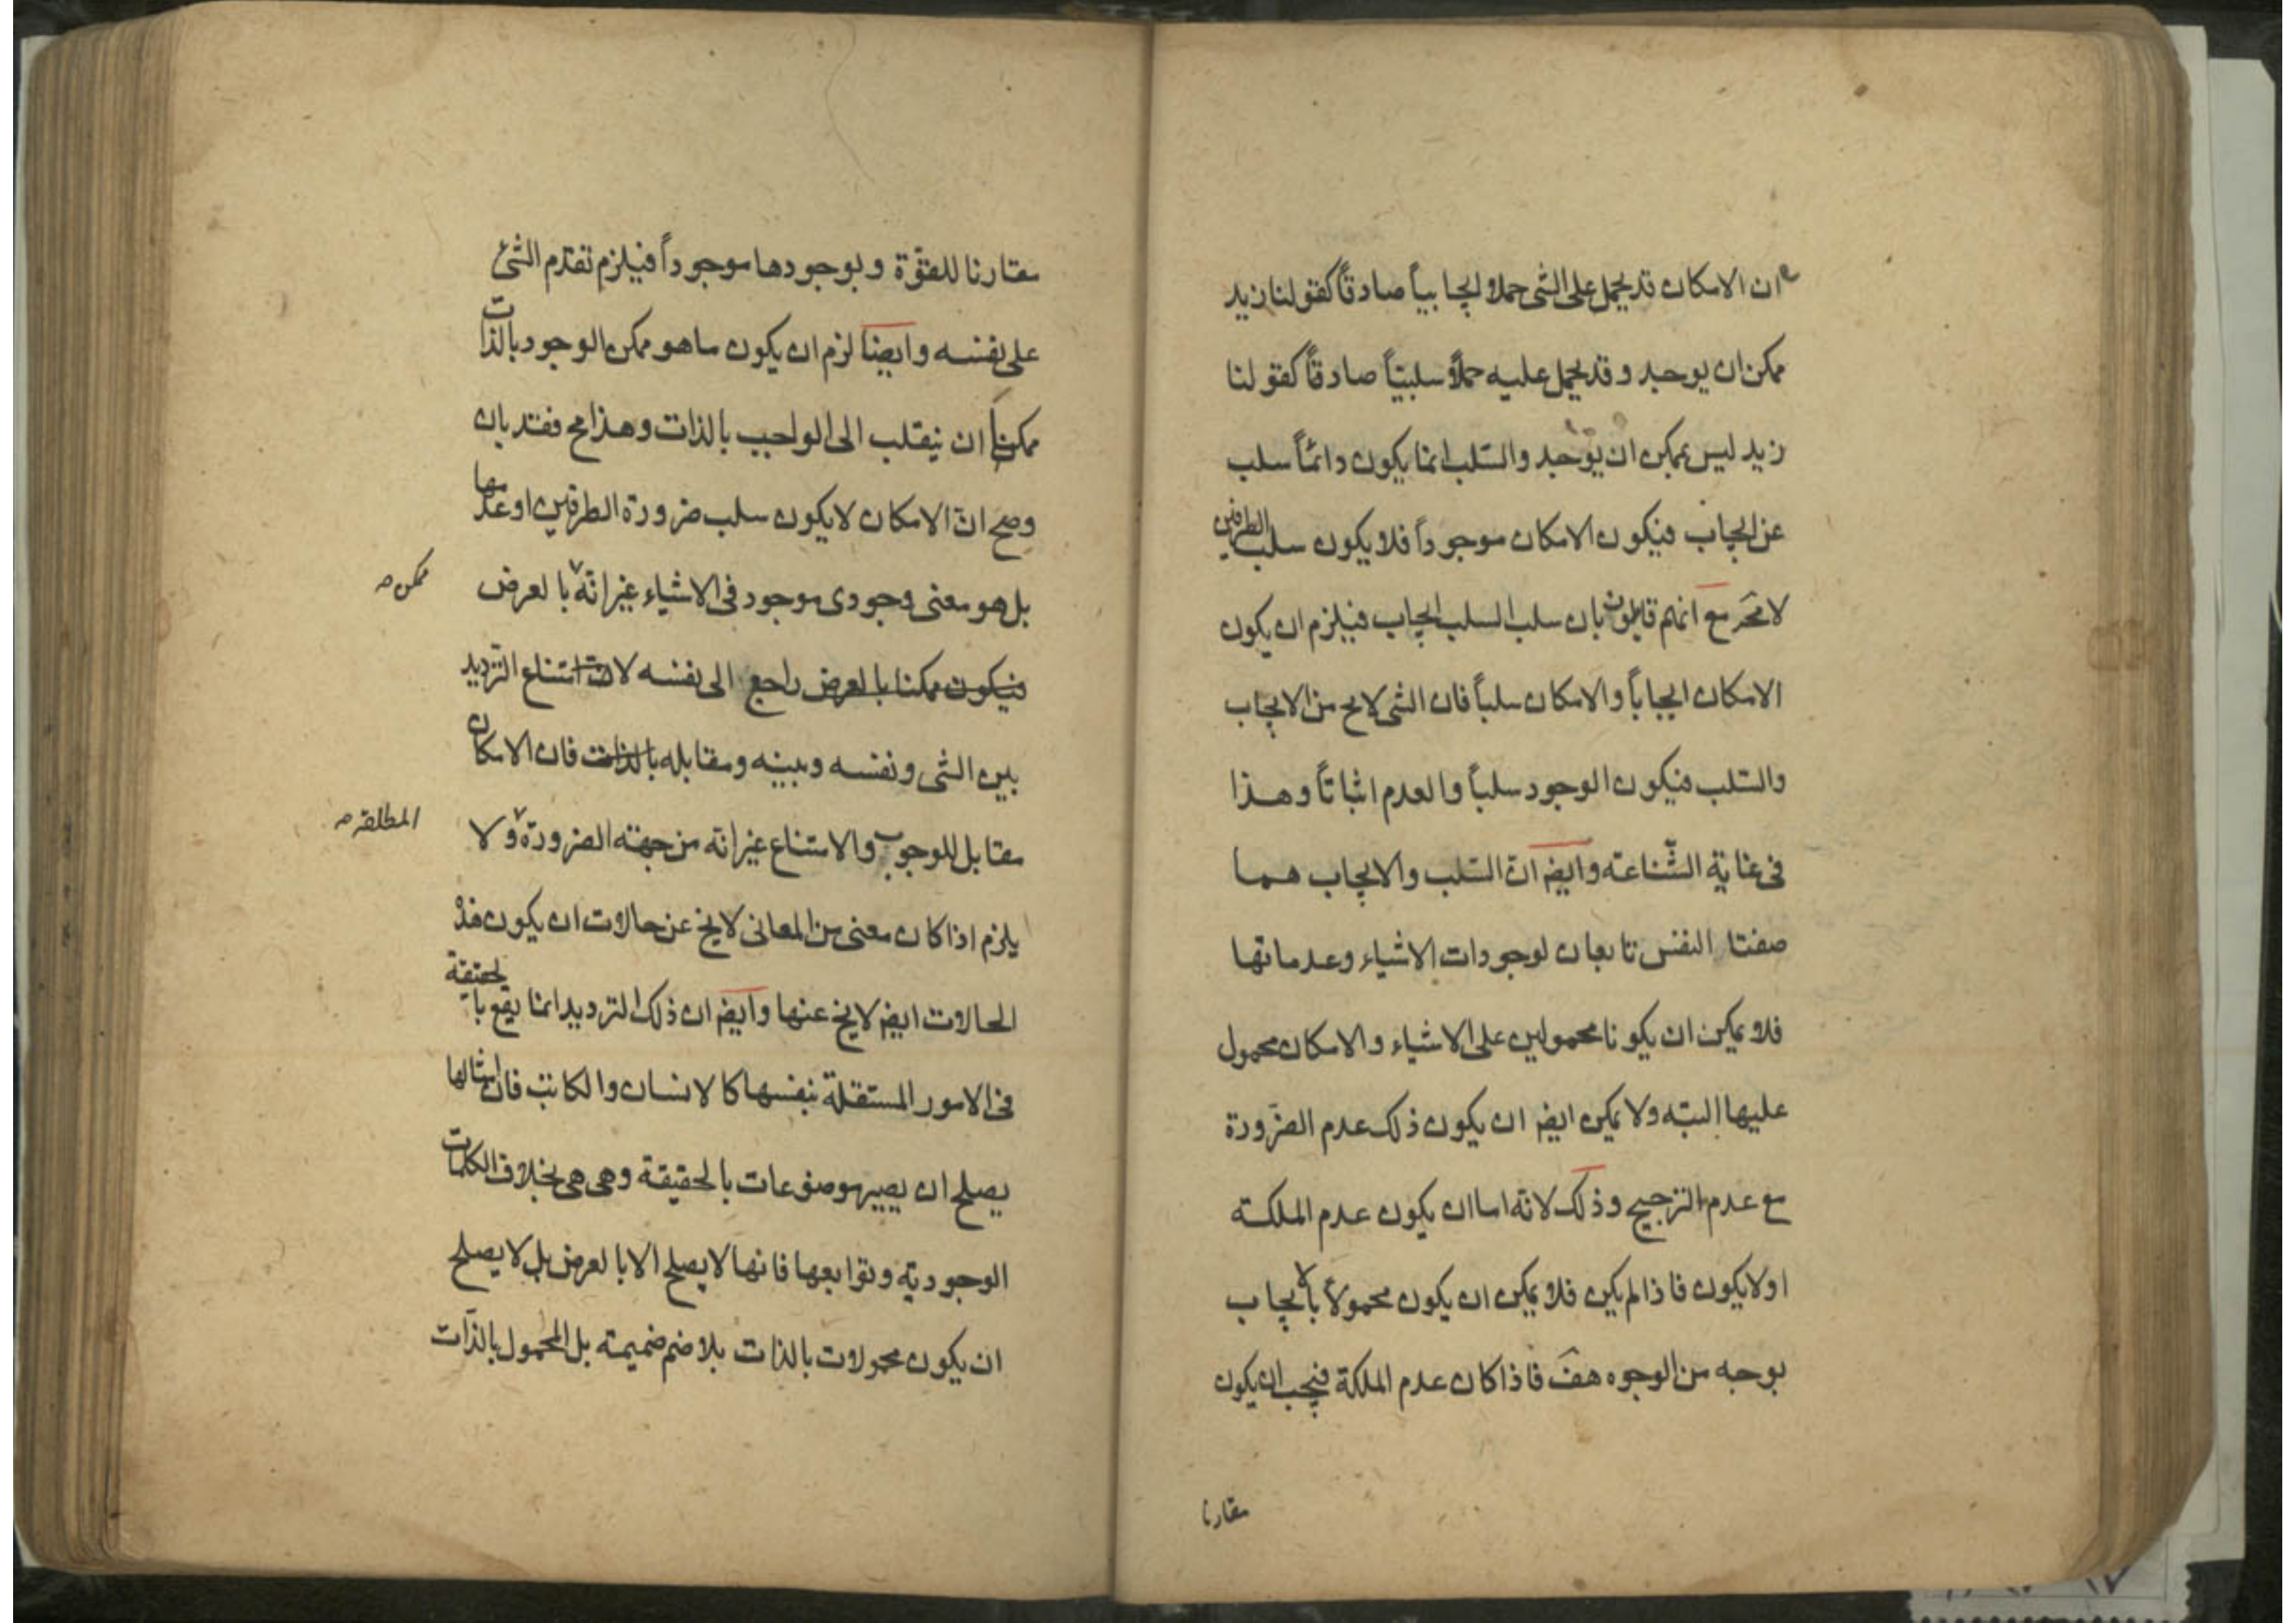 ان الامكان قد يحمل على الشى حملا ايجابياً صادقاً كقولنا زيد
ممكن ان يوجد و قد يحمل عليه حملاً سلبيّاً صادقاً كقولنا
زيد ليس بممكن ان يوجد والسّلب انما يكون دائماً سلب
عن ايجاب فيكون الامكان موجوداً فلا يكون سلب الطرفين
لامحَر مع انهم قايلون بان سلب السلب ايجاب فيلزم ان يكون
الامكان ايجاباً والامكان سلباً فان الشى لايح من الايجاب
والسّلب فيكون الوجود سلباً والعدم اثباتاً وهذا
فى غاية الشّناعة وايض انّ السّلب والايجاب هما
صفتا النفس تابعان لوجودات الاشياء وعدماتها
فلا يمكن ان يكونا محمولين على الاشياء والامكان محمول
عليها البته ولا يمكن ايض ان يكون ذلك عدم الضّرورة
مع عدم الترجيح وذلك لانّه اما ان يكون عدم الملكة
اولايكون فاذا لم يكن فلا يمكن ان يكون محمولاً بالايجاب
بوجه من الوجوه هف فاذا كان عدم الملكة فيجب ان يكون
مقارنا
مقارنا للقوّة و بوجودها موجوداً فيلزم تقدّم الشئ
على نفسه وايضا لزم ان يكون ماهو ممكن الوجود بالذات
ممكناً ان ينقلب الى الواجب بالذات وهذا مح فقد بان
وصح انّ الامكان لايكون سلب ضرورة الطرفين اوعدمها
بل هو معنى وجودى موجود فى الاشياء غير انّه بالعرض
ممكن صـ
فيكون ممكنا بالعرض راجع الى نفسه امتناع الترديد
بين الشى ونفسه وبينه ومقابله بالذات فان الامكان
مقابل للوجوب والامتناع غير انّه من جهة الضرورة ولا
المطلقه صـ
يلزم اذا كان معنى من المعانى لايخ عن حالات ان يكون هذه
الحالات ايض لايخ عنها وايض ان ذلك الترديد انما يقع بالحقيقة
فى الامور المستقلة بنفسها كالانسان والكاتب فان امثالها
يصلح ان يصير موضوعات بالحقيقة وهى هى بخلاف الكلمات
الوجودية وتوابعها فانها لايصلح الا بالعرض بل لايصلح
ان يكون محمولات بالذات بلا ضم ضميمة بل المحمول بالذّات